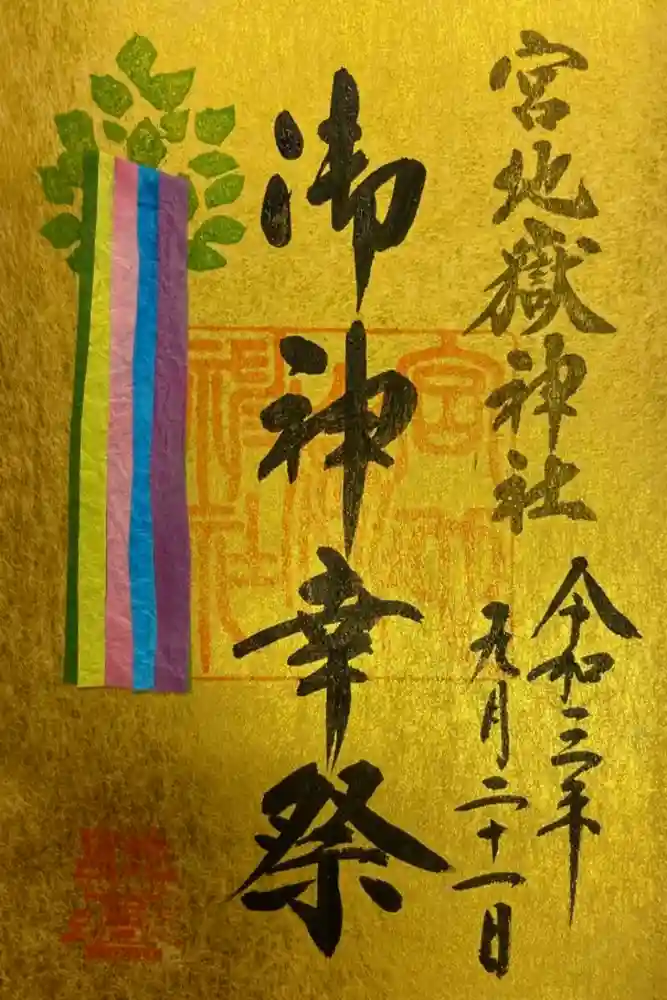 宮地嶽神社
令和三年
九月二十一日
御神幸祭
宮地嶽神社